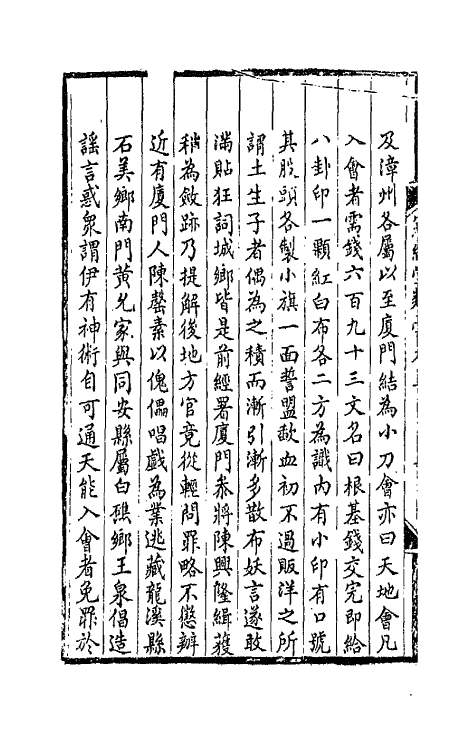 及漳州各屬以至廈門結為小刀會亦曰天地會凡
入會者需錢六百九十三文名曰根基錢交完即給
八卦印一顆紅白布各二方為識內有小印有口號
其股頭各製小旗一面誓盟歃血初不過販洋之所
謂土生子者偶為之積而漸引漸多散布妖言遂敢
滿貼狂詞城鄉皆是前經署廈門叅將陳興隆緝獲
稍為斂跡乃提解後地方官竟從輕問罪略不懲辦
近有廈門人陳罄素以傀儡唱戲為業逃藏龍溪縣
石美鄉南門黃允家與同安縣屬白礁鄉王泉倡造
謡言惑衆謂伊有神術自可通天能入會者免罪於